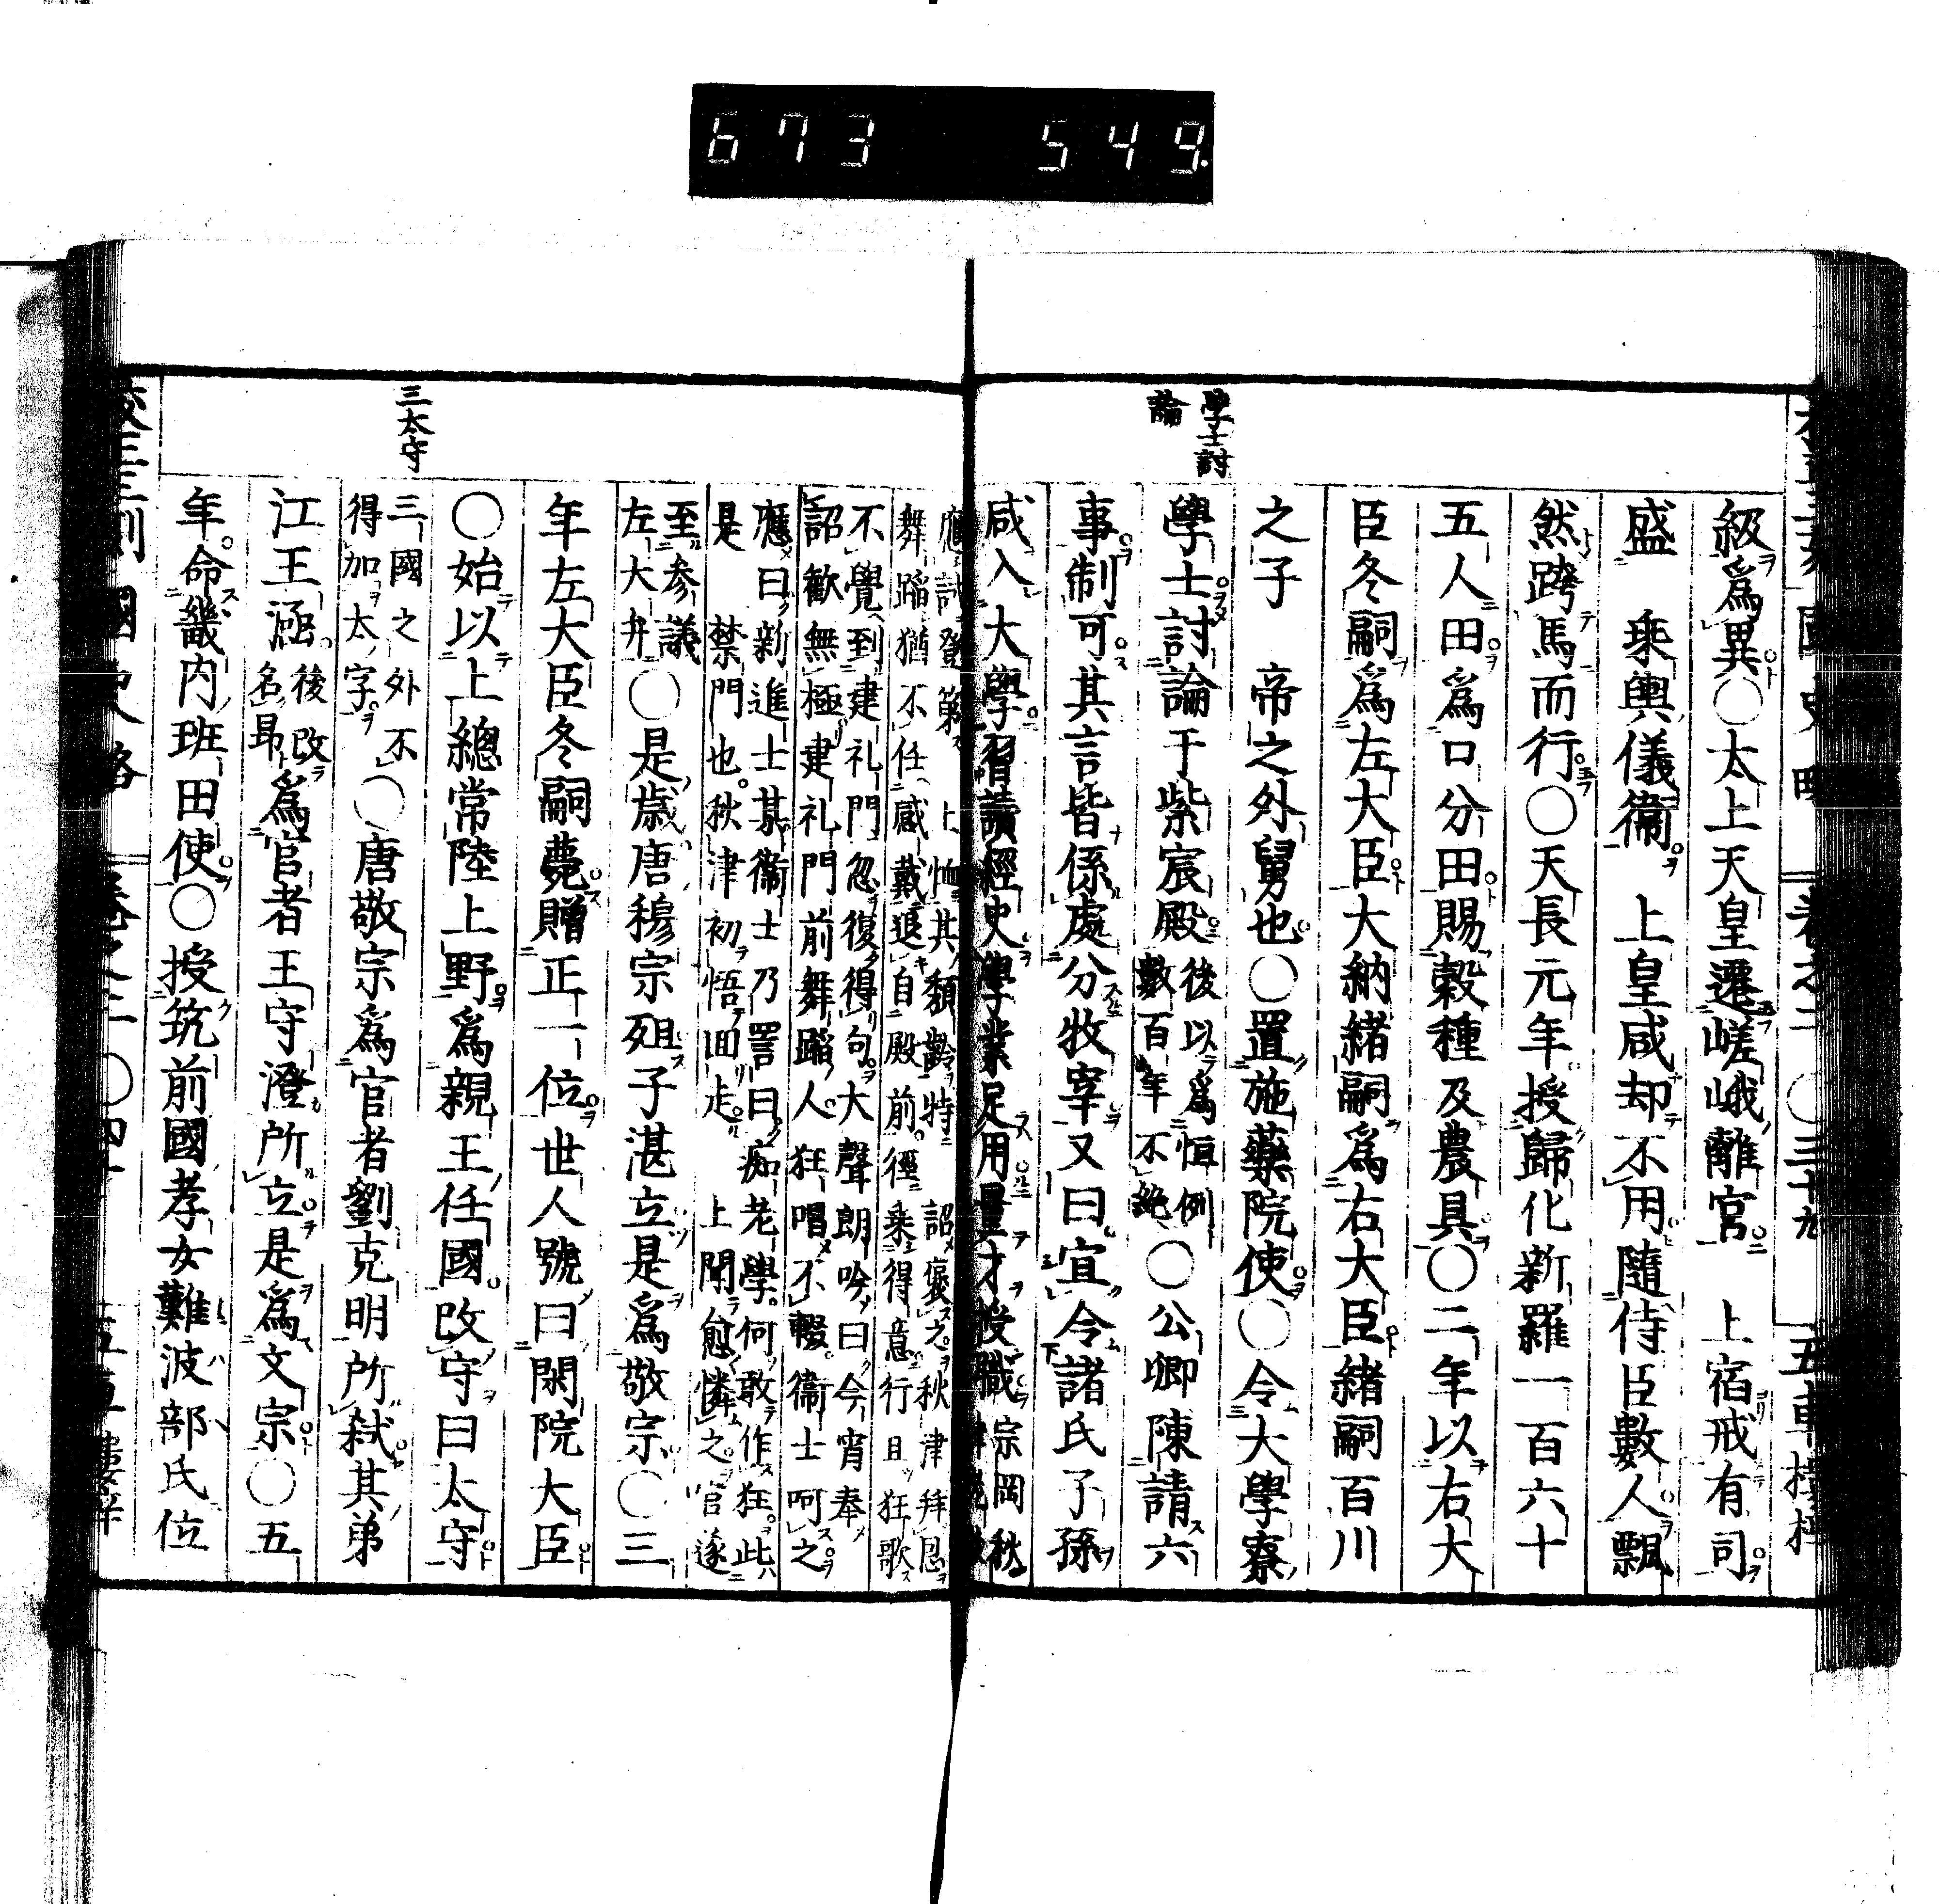 673 549.
國史略 卷之二 〇三十九 五車樓梓
學士討
論
級爲異〇太上天皇遷嵯峨離宮 上宿戒有司
盛 乘輿儀衞 上皇咸却不用隨侍臣數人飄
然跨馬而行〇天長元年授歸化新羅一百六十
五人田爲口分田賜穀種及農具〇二年以右大
臣冬嗣爲左大臣大納緒嗣爲右大臣緒嗣百川
之子 帝之外舅也〇置施藥院使〇令大學寮
學士討論于紫宸殿後以爲恒例
數百年不絶〇公卿陳請六
事制可其言皆係處分牧宰又曰宜令諸氏子孫
咸入大學習讀經史學業足用量才授職宗岡秋
應試登第 上恤其頽齡特 詔褒之秋津拜恩
舞蹈猶不任感戴退自殿前徑乘得意行且狂歌
不覺到建礼門忽復得句大聲朗吟曰今宵奉
詔歡無極建礼門前舞蹈人狂唱不輟衞士呵之
應曰新進士某衞士乃詈曰痴老學何敢作狂此
是 禁門也秋津初悟囬走 上聞愈憐之官遂
至參議
左大弁〇是歳唐穆宗殂子湛立是爲敬宗〇三
年左大臣冬嗣薨贈正一位世人號曰閑院大臣
〇始以上總常陸上野爲親王任國改守曰太守
三太守
三國之外不
得加太字〇唐敬宗爲官者劉克明所弑其弟
江王涵後改
名昻爲官者王守澄所立是爲文宗〇五
年命畿内班田使〇授筑前國孝女難波部氏位
國史略 卷之二 〇四十 五車樓梓